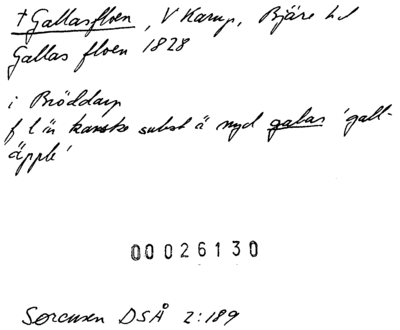 † Gallasfloen, V Karup, Bjäre hd
Gallas floen 1828
i Bröddarp
f l är kanske subst ä nyd galas 'gall-
äpple'
00026130
Sørensen DSÅ 2:189